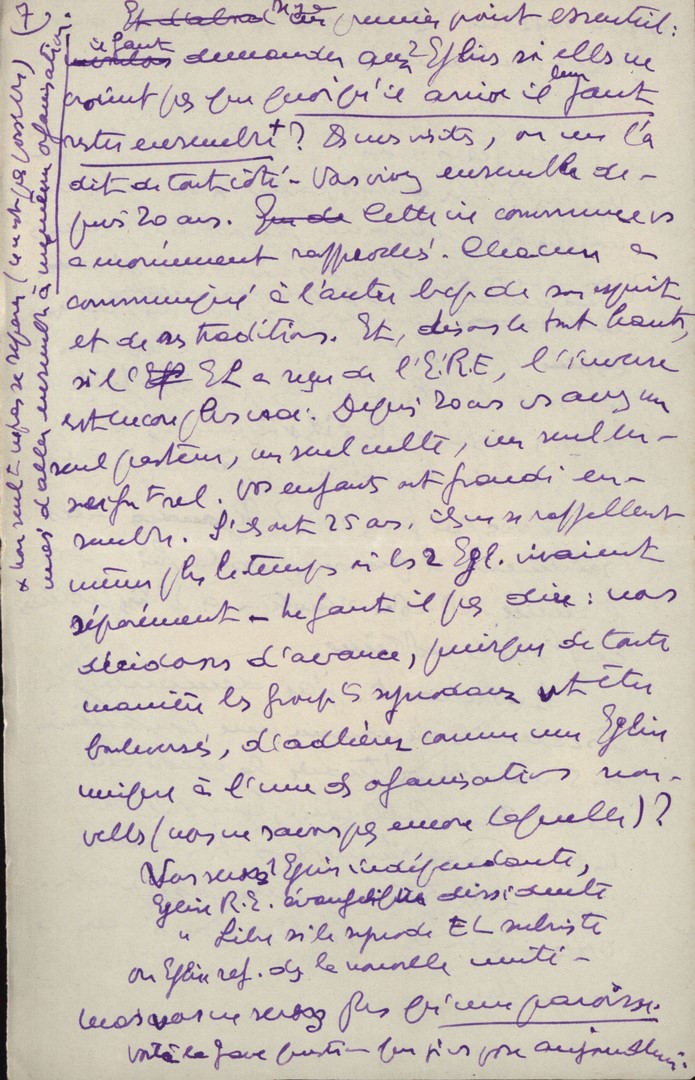 7)
Et d'abord un premier point essentiel :
il faut demander aux 2 Eglises si elles ne
croient pas que quoiqu'il arrive il leur faut
rester ensemble + ? Ds mes visites, on me l'a
dit de tout côté - Vs vivez ensemble de-
puis 20 ans. Cette vie commune vs
a énormément rapprochés. Chacun a
communiqué à l'autre bcp de son esprit
et de ses traditions. Et, disons le tout haut,
si l' EL a reçu de l'E.R.E, l'inverse
est encore plus vrai. Depuis 20 ans vs avez un
seul pasteur, un seul culte, un seul en-
seignt rel. Vos enfants ont grandi en-
semble. S'ils ont 25 ans, ils ne se rappellent
même plus le temps où les 2 Egl. vivaient
séparément - Ne faut il pas dire : nous
décidons d'avance, puisque de toute
manière les groupts synodaux vt être
bouleversés, d'adhérer comme une Eglise
unique à l'une ds organisations nou-
velles (nous ne savons pas encore laquelle) ?
Vous serez Eglise indépendante,
Eglise R.E. évangélique dissidente
" Libre si le synode EL subsiste
ou Eglise ref. ds la nouvelle unité -
mais vous ne serez plus qu'une paroisse.
Voilà la grave question que je vs pose aujourd'hui.
+ non seult ne pas se séparer (ce n'est pas possible)
mais d'aller ensemble à une même organisation.